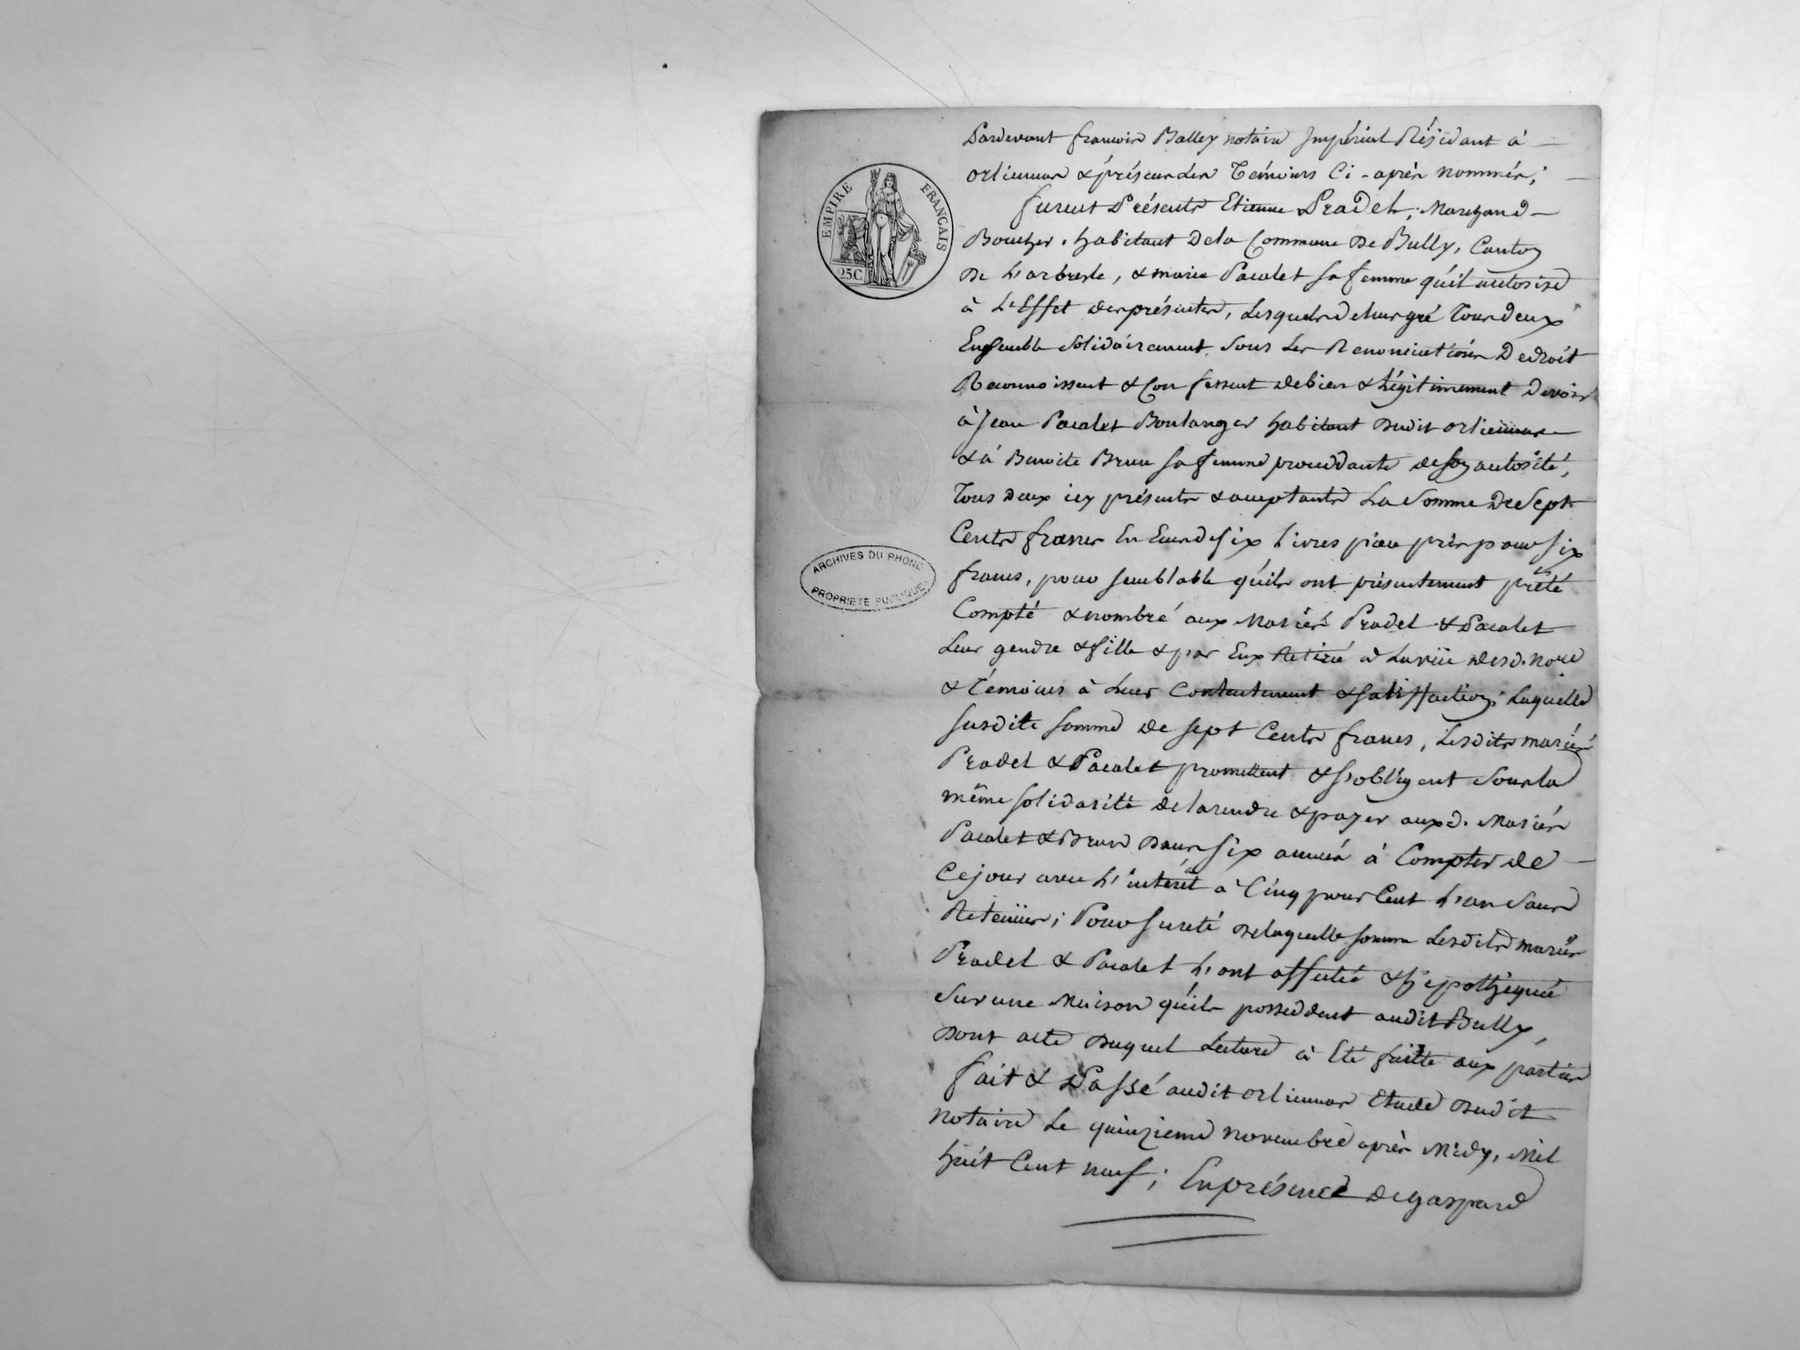 EMPIRE FRANÇAIS
25C
ARCHIVES DU RHONE
PROPRIETE PUBLIQUE
Pardevant françois Balley notaire Impérial Résidant à
orliennas & présence des Témoins Ci-après nommés;
furent Présents Etienne Pradel, Marchand
Boucher, habitant dela Commune de Bully, Canton
De L'arbresle, & marie Pacalet sa femme qu'il autorise
à L'Effet des présentes, Lesquels de leur gré Tous deux
Ensemble solidairement sous Les Renonciations De droit
Reconnoissent & Confessent de bien & Légitimement Devoir
à Jean Pacalet Boulanger habitant dudit orliennas
& à Benoite Brun sa femme proceddante de son autorité,
Tous deux icy présents & acceptants La Somme De Sept
Cents francs En Ecus de six Livres pieu près pour six
francs, pour semblable qu'ils ont présentement prêté
Compté & nombré aux Mariés Pradel & Pacalet
Leur gendre & fille & par Eux Retiré à La vüe desd. no.re
& Témoins à Leur Contentement & satisfaction; Laquelle
susdite somme de sept Cents francs, Lesdits mariés
Pradel & Pacalet promettent & s'obligent sous la
même solidarité de la rendre & payer auxd. Mariés
Pacalet & Brun Dans six années à Compter de
Ce jour avec L'intérêt à Cinq pour Cent L'an Sans
Retenüe; Pour sureté de laquelle somme Lesdits mariés
Pradel & Pacalet L'ont affecté & hÿpothéqué
Sur une Maison qu'ils posseddent audit Bully,
Dont acte Duquel Lecture à Eté faitte aux parties
fait & Passé audit orliennas Etude Dudit
notaire Le quinzieme novembre après Midy, Mil
huit Cent neuf; En présence de gaspard